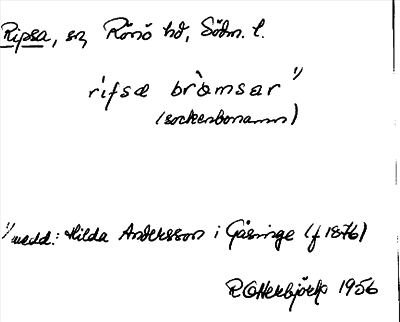 Ripsa, sn, Rönö hd, Södm. l.
rifsæ bròmsar 1)
(sockenbonamn)
1) medd.: Hilda Andersson i Gåsinge (f 1876)
R Otterbjörk 1956